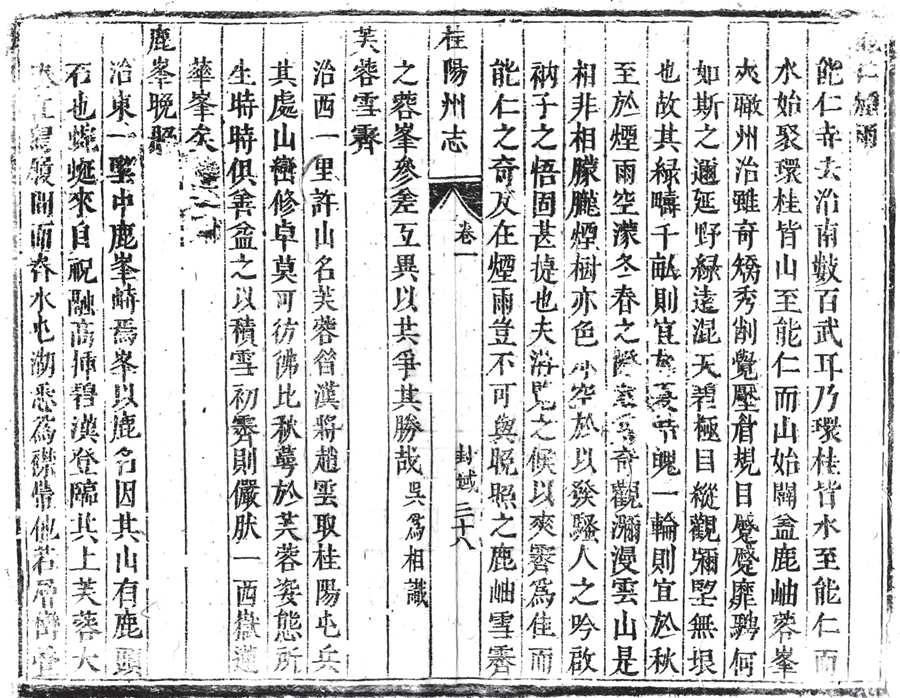 能仁煙雨
能仁寺去治南數百武耳乃環桂皆水至能仁而
水始聚環桂皆山至能仁而山始關蓋鹿岫蓉峯
夾瞰州治雖奇矯秀削覺壓倉規目蹙蹙靡騁何
如斯之邇延野綠遠混天碧極目縱觀彌望無垠
也故其綠疇千畝則宜於夏皓魄一輪則宜於秋
至於煙雨空濛冬春之奇觀瀰漫雲山是
相非相朦朧煙樹亦色亦空於以發騷人之吟啟
衲子之悟固甚捷也夫游覽之候以爽霽為佳而
能仁之奇反在煙雨豈不可與晚照之鹿岫雪霽
桂陽州志 卷一 封域 三十八
之蓉峯參差互異以共爭其勝哉 吳為相識
芙蓉雪霽
治西一里許山名芙蓉昔漢將趙雲取桂陽屯兵
其處山巒修卓莫可彷彿比秋蕚於芙蓉姿態所
生時時俱善益之以積雪初霽則儼肰一西嶽蓮
華峯矣
鹿峯晚照
治東一望中鹿峯峙焉峯以鹿名因其山有鹿頭
石也蜿蜒來自祝融高揷碧漢登臨其上芙蓉大
湊江為襟間面春水屯湖悉為襟帶他若層巒疊